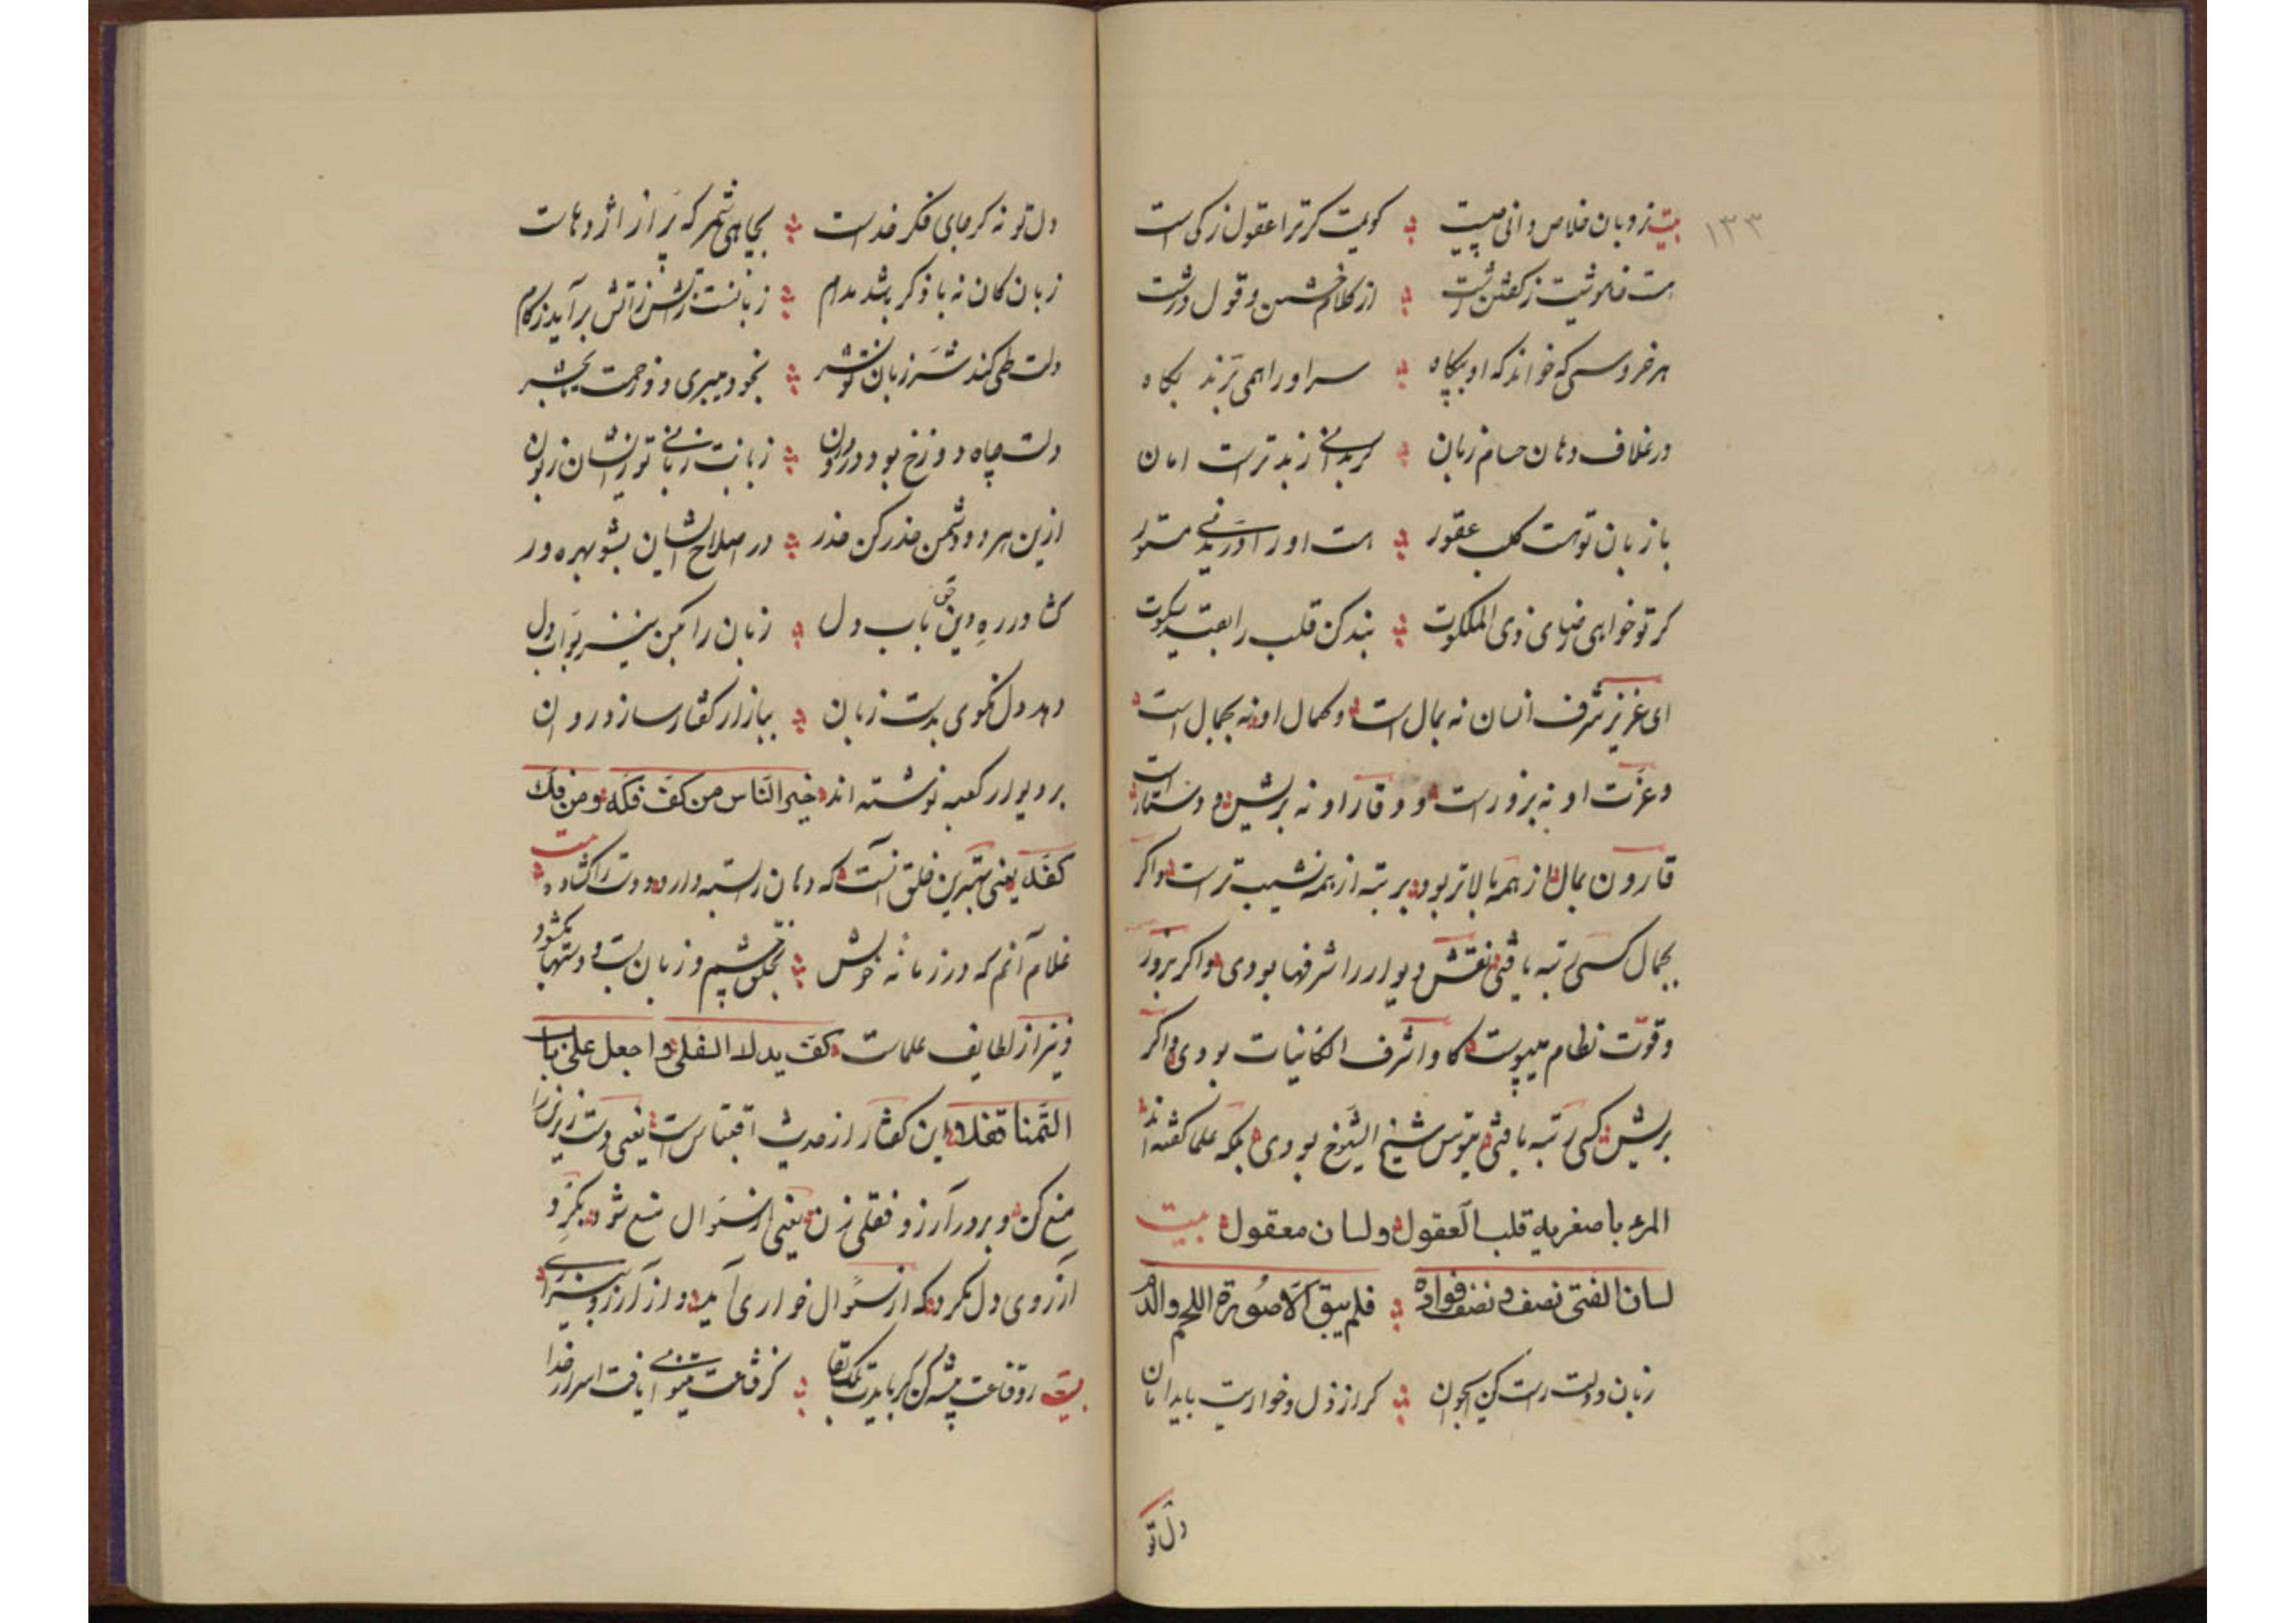 ۱۳۳
بیت زوبان خلاص دانی چیست کویمت کر ترا عقول زکی است
هست خاموشیت ز کفتن زشت از کلام خشن و قول درشت
هر خروسی که خواند که او بیکاه سر او را همی برند بکاه
در غلاف دهان حسام زبان کر بدانی زبد ترست امان
باز بان تو هست کلب عقور هست او را درندنی مستور
کر تو خواهی رضای ذی الملکوت بند کن قلب را بقید سکوت
ای عزیز شرف انسان نه بمال است و کمال او نه بجمال است
و عزت او نه بزورست و وقار او نه بریش و دستار است
قارون بمال از همه بالاتر بود برتبه از همه نشیب ترست و اکر
بجمال کسی رتبه یافتی نقش دیوار را شرفها بودی و اکر بزور
و قوّت نظام میپیوست کاو اشرف الکائنات بودی و اکر
بریش کسی رتبه یافتی تیوس شیخ الشیوخ بودی بلکه علما کفته اند
المرء باصغریه قلب العقول ولسان معقول بیت
لسان الفتی نصف و نصف فواده فلم یبق الا صورة اللحم والدم
زبان و دلت راست کن ای جوان کر از ذل و خواریت باید امان
دل تو
دل تو نه کر جای فکر خداست بچاهی شمر که پر از اژدهاست
زبان کان نه با ذکر باشد مدام زبانست زآتش برآید ز کام
دلت طی کند شر زبان نشر بخود میبری دوزخت بحشر
دلت چاه دوزخ بود در درون زبانت زبانی تو زایشان زبون
ازین هر دو دشمن حذر کن حذر در اصلاح ایشان بشو بهره ور
کشا در ره دین حق باب دل زبان را مکن نیز بوّاب دل
دهد دل نکوی بدست زبان ببازار کفتار سازد روان
بر دیوار کعبه نوشته اند خیر الناس من کفّ فکه ومن فکّ
کفّه یعنی بهترین خلق آنست که دهان را بسته دارد و دست را کشاده بیت
غلام آنم که در زمانه خویش بخلق چشم و زبان بست و دستها بکشود
و نیز از لطایف علماست کف یدک السفلی واجعل علی باب
التمنا قفلا این کفتار از حدیث اقتباس است یعنی دست زیرین را
منع کن و بر در آرزو قفلی زن یعنی از سئوال منع شو و بکرد
آرزوی دل مکرد که از سئوال خواری آید و از آرزو بیزاری
بیت رو قناعت پیشه کن کر بایدت ملک بقا کز قناعت میتوانی یافت اسرار خدا